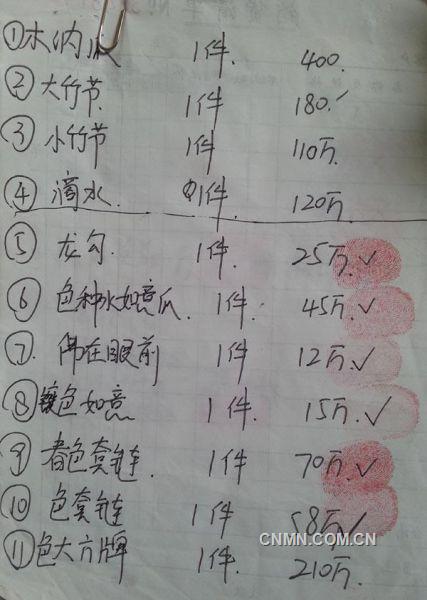 ① 木纳 1件. 400.
② 大竹节 1件 180.
③ 小竹节 1件 110万.
④ 滴水. 1件. 120万.
⑤ 龙勾. 1件. 25万. ✓
⑥ 色种水如意瓜. 1件. 45万. ✓
⑦. 佛在眼前 1件 12万. ✓
⑧ 色如意 1件. 15万. ✓
⑨ 春色套链. 1件 70万. ✓
⑩ 色套链 1件 58万 ✓
⑪ 色大方牌 1件. 210万.
CNMN.COM.CN